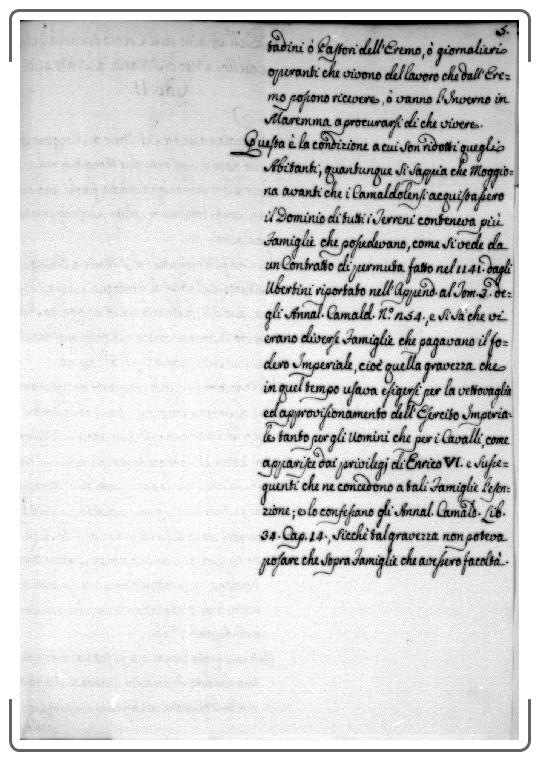 5.
tadini ò Pastori dell'Eremo, ò giornalieri
operanti che vivono del lavoro che dall'Ere=
mo possono ricevere, ò vanno l'Inverno in
Maremma a procurarsi di che vivere.
Questa è la condizione a cui son ridotti quegli
Abitanti, quantunque si sappia che Moggio=
na avanti che i Camaldolensi acquistassero
il Dominio di tutti i Terreni conteneva più
Famiglie che possedevano, come si vede da
un Contratto di permuta fatto nel 1141. dagli
Ubertini riportato nell'Append. al Tom. 3. de=
gli Annal. Camald. N.° 254., e si sà che vi
erano diverse Famiglie che pagavano il fo=
dero Imperiale, cioè quella gravezza che
in quel tempo usava esigersi per la vettovaglia
ed approvisionamento dell'Esercito Imperia=
le tanto per gli Uomini che per i Cavalli, come
apparisce dai privilegj di Enrico VI. e susse=
guenti che ne concedono a tali Famiglie l'esen=
zione; e lo confessano gli Annal. Camald. Lib.
34. Cap. 14., sicchè tal gravezza non poteva
posare che sopra Famiglie che avessero facoltà.